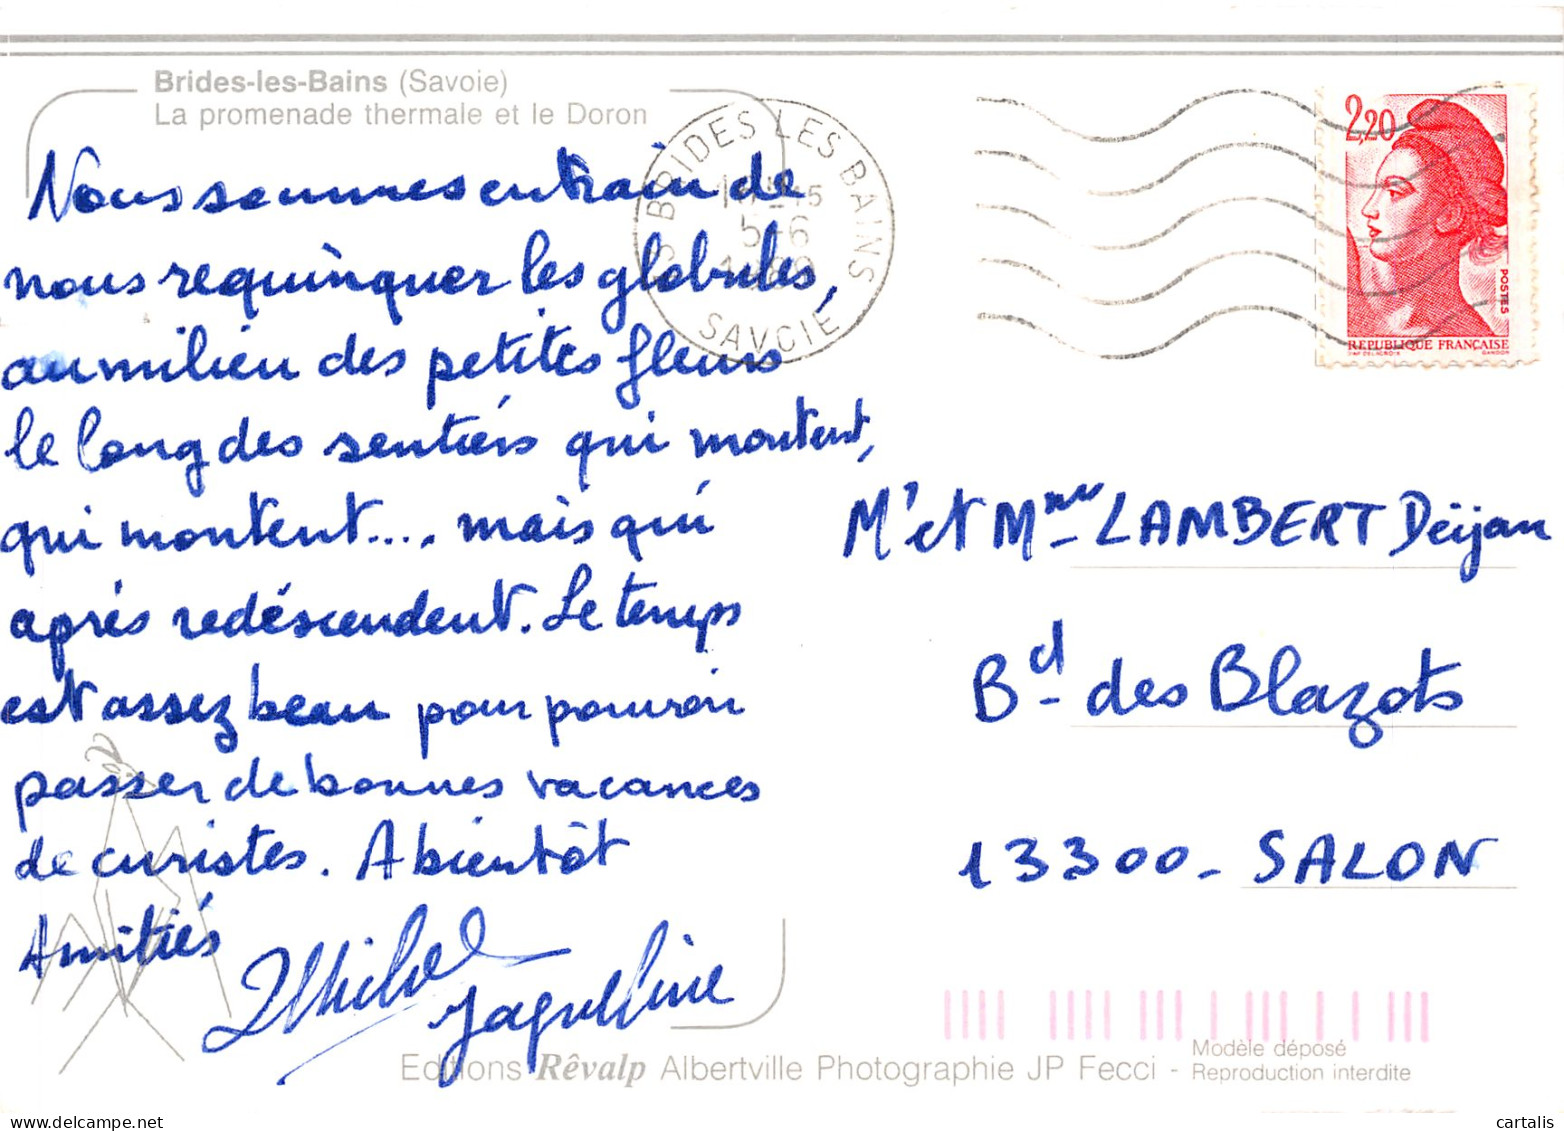 Brides-les-Bains (Savoie)
La promenade thermale et le Doron
Nous sommes en train de
nous requinquer les globules,
au milieu des petites fleurs
le long des sentiers qui montent,
qui montent.... mais qui
après redéscendent. Le temps
est assez beau pour pouvoir
passer de bonnes vacances
de curistes. A bientôt
Amitiés
Michel
Jacqueline
BRIDES LES BAINS
5-6
SAVOIE
2,20
POSTES
REPUBLIQUE FRANÇAISE
D'AP. DELACROIX GANDON
Mr et Mme LAMBERT Déijan
Bd des Blazots
13300 - SALON
Editions Rêvalp Albertville Photographie JP Fecci -
Modèle déposé
Reproduction interdite
cartalis